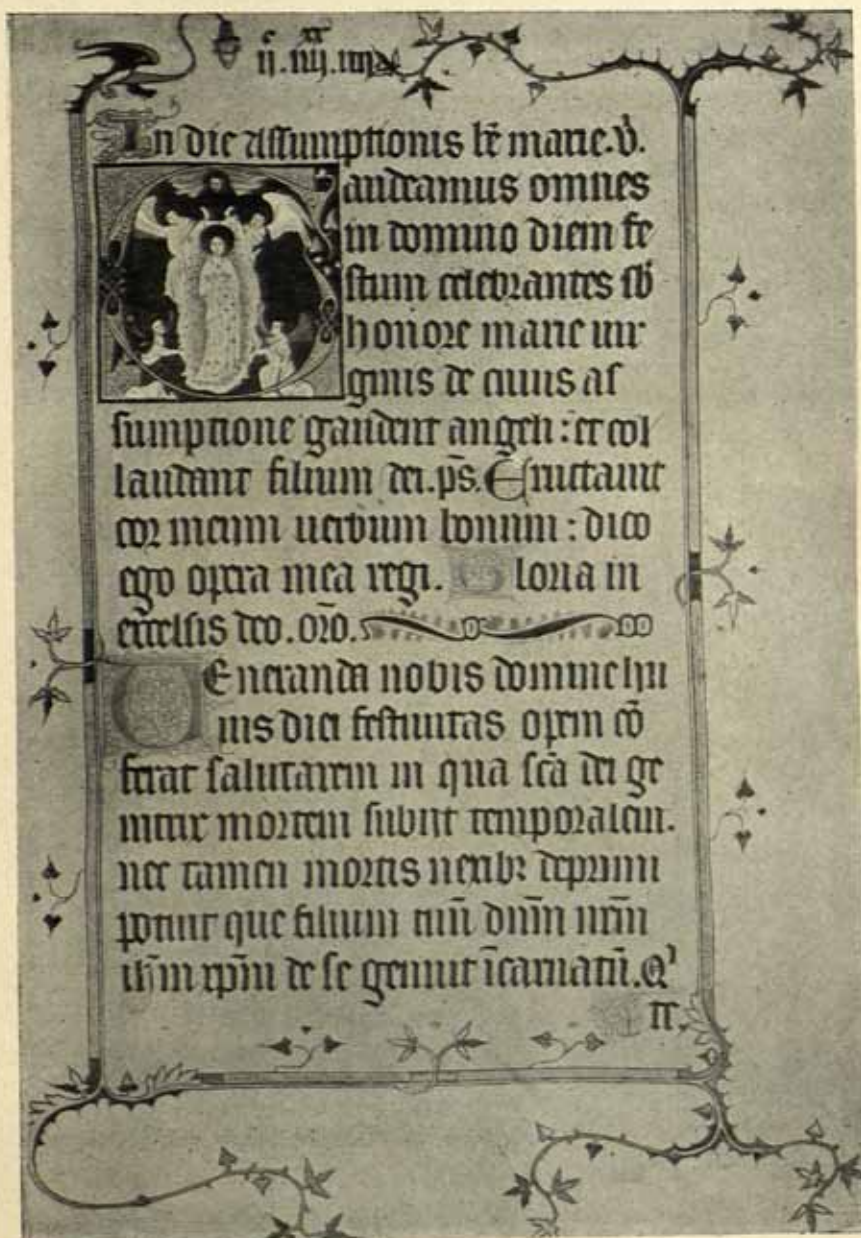 ii^c. iiij^xx. iiij
In die assumptionis bē marie. v̄.
audeamus omnes
in domino diem fe
stum celebrantes sb̄
honore marie uir
ginis de cuius as
sumptione gaudent angeli : et col
laudant filium dei. p̄s. Eructauit
cor meum uerbum bonum : dico
ego opera mea regi. Gloria in
excelsis deo. or̄o.
Ueneranda nobis domine hu
ius diei festiuitas opem cō
ferat salutarem in qua sc̄a dei ge
nitrix mortem subiit temporalem.
nec tamen mortis nexibꝫ deprimi
potuit que filium tuū dn̄m nr̄m
ih̄m xp̄m de se genuit īcarnatū. Q'